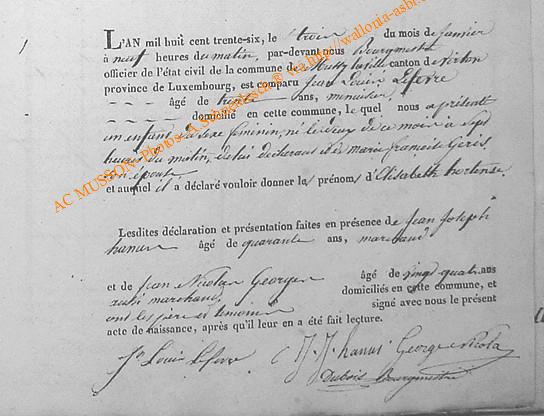 1
L'AN mil huit cent trente-six, le trois du mois de janvier
à neuf heures du matin, par-devant nous Bourgmestre
officier de l'état civil de la commune de Mussy la ville canton de Virton
province de Luxembourg, est comparu Jean Louis Lefevre
âgé de trente ans, menuisier
domicilié en cette commune, le quel nous a présenté
un enfant du sexe feminin, né le deux de ce mois à sept
heures du matin, de lui déclarant et de marie françoise Gérès
son épouse
et auquel il a déclaré vouloir donner les prénoms d'Elisabeth hortense
Lesdites déclaration et présentation faites en présence de Jean Joseph
hanus âgé de quarante ans, marchand
et de Jean Nicolas Georges âgé de vingt quatre ans
marchand domiciliés en cette commune, et
ont les père et temoins signé avec nous le présent
acte de naissance, après qu'il leur en a été fait lecture.
Jn Louis Lefevre J. J. hanus George Nicola
Dubois Bourgmestre
AC MUSSON-Photos A. Schumbesch® via http://wallonia-asbl